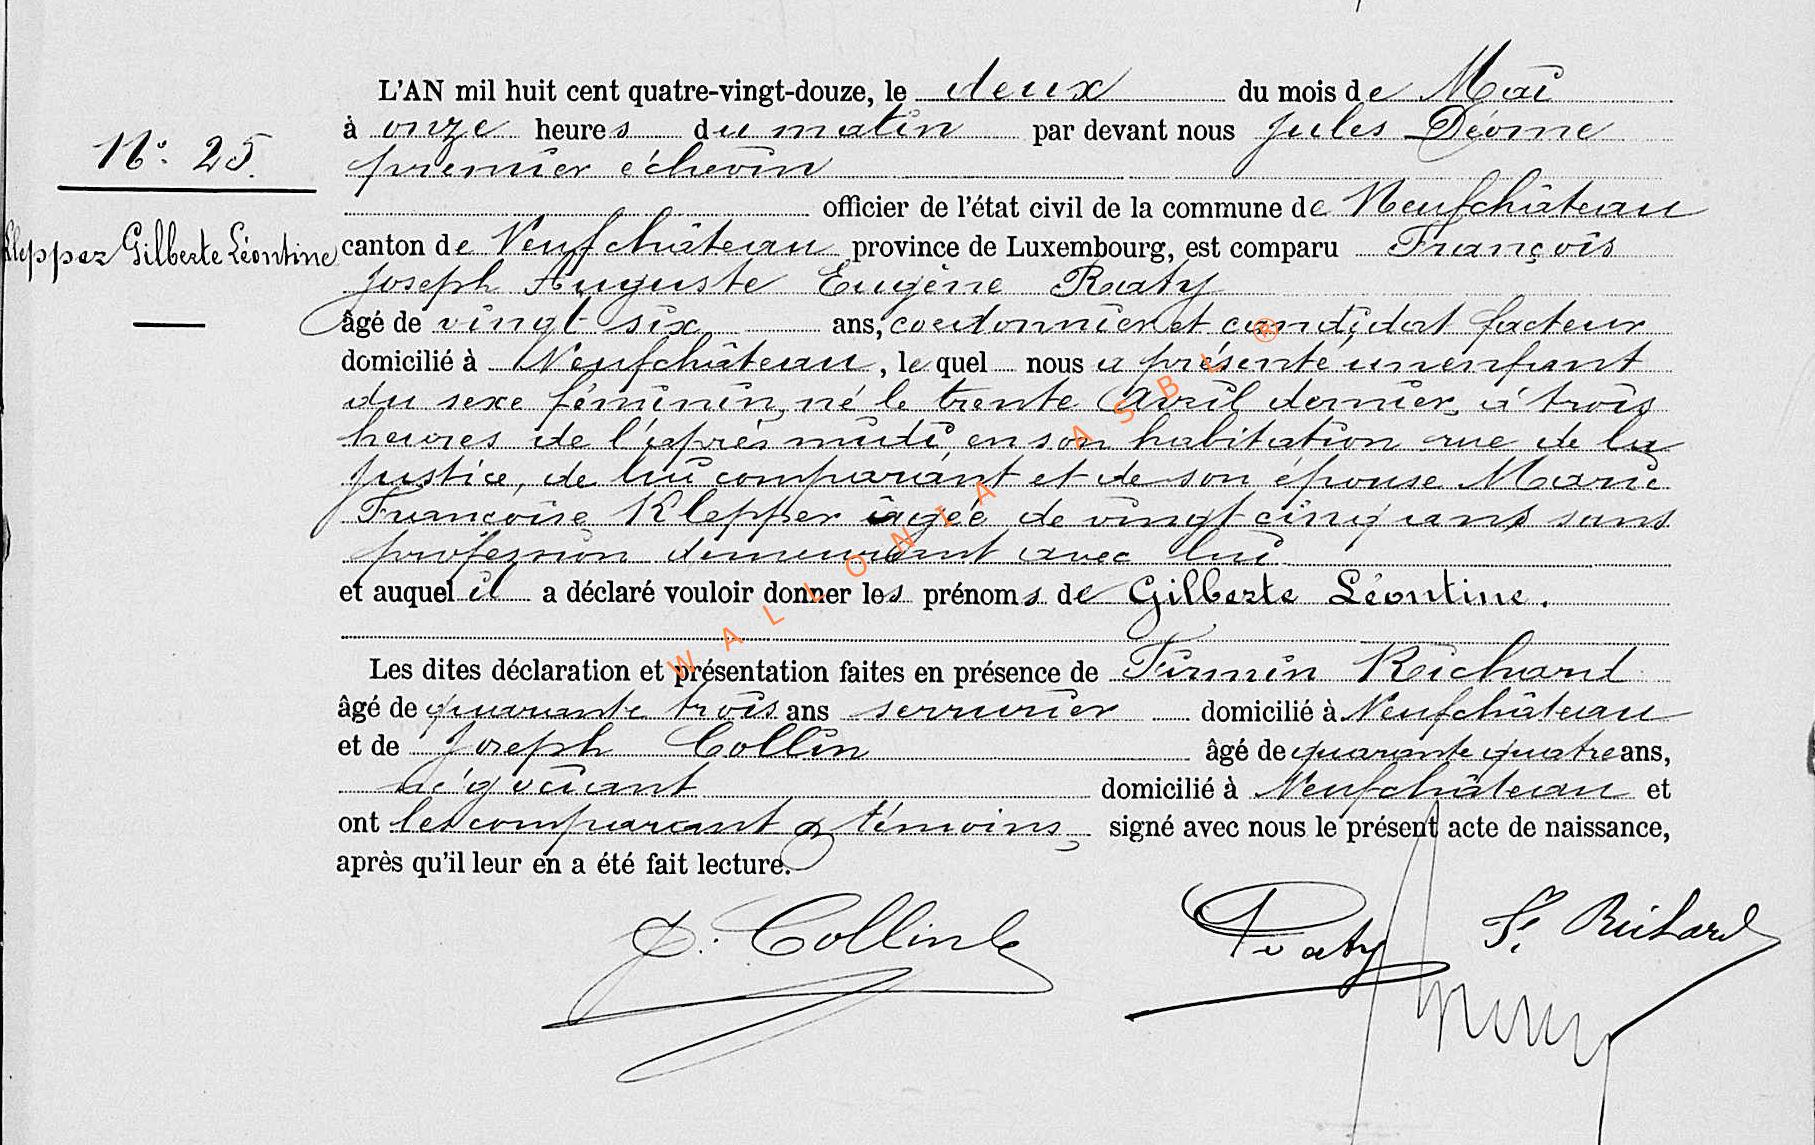 L'AN mil huit cent quatre-vingt-douze, le deux du mois de Mai
à onze heures du matin par devant nous Jules Déome
N° 25.
premier échevin
officier de l'état civil de la commune de Neufchâteau
Kleppez Gilberte Léontine
canton de Neufchâteau province de Luxembourg, est comparu François
Joseph Auguste Eugène Raty
âgé de vingt six ans, cordonnier et candidat facteur
domicilié à Neufchâteau, lequel nous a présenté un enfant
du sexe féminin, né le trente Avril dernier, à trois
heures de l'après midi en son habitation rue de la
Justice, de lui comparant et de son épouse Marie
Françoise Klepper âgée de vingt cinq ans sans
profession demeurant avec lui
et auquel il a déclaré vouloir donner les prénoms de Gilberte Léontine.
Les dites déclaration et présentation faites en présence de Firmin Richard
âgé de quarante trois ans serrurier domicilié à Neufchâteau
et de Joseph Collin âgé de quarante quatre ans,
négociant domicilié à Neufchâteau et
ont les comparant & témoins signé avec nous le présent acte de naissance,
après qu'il leur en a été fait lecture.
J. Collin Raty F. Richard
WALLONIA ASBL ®